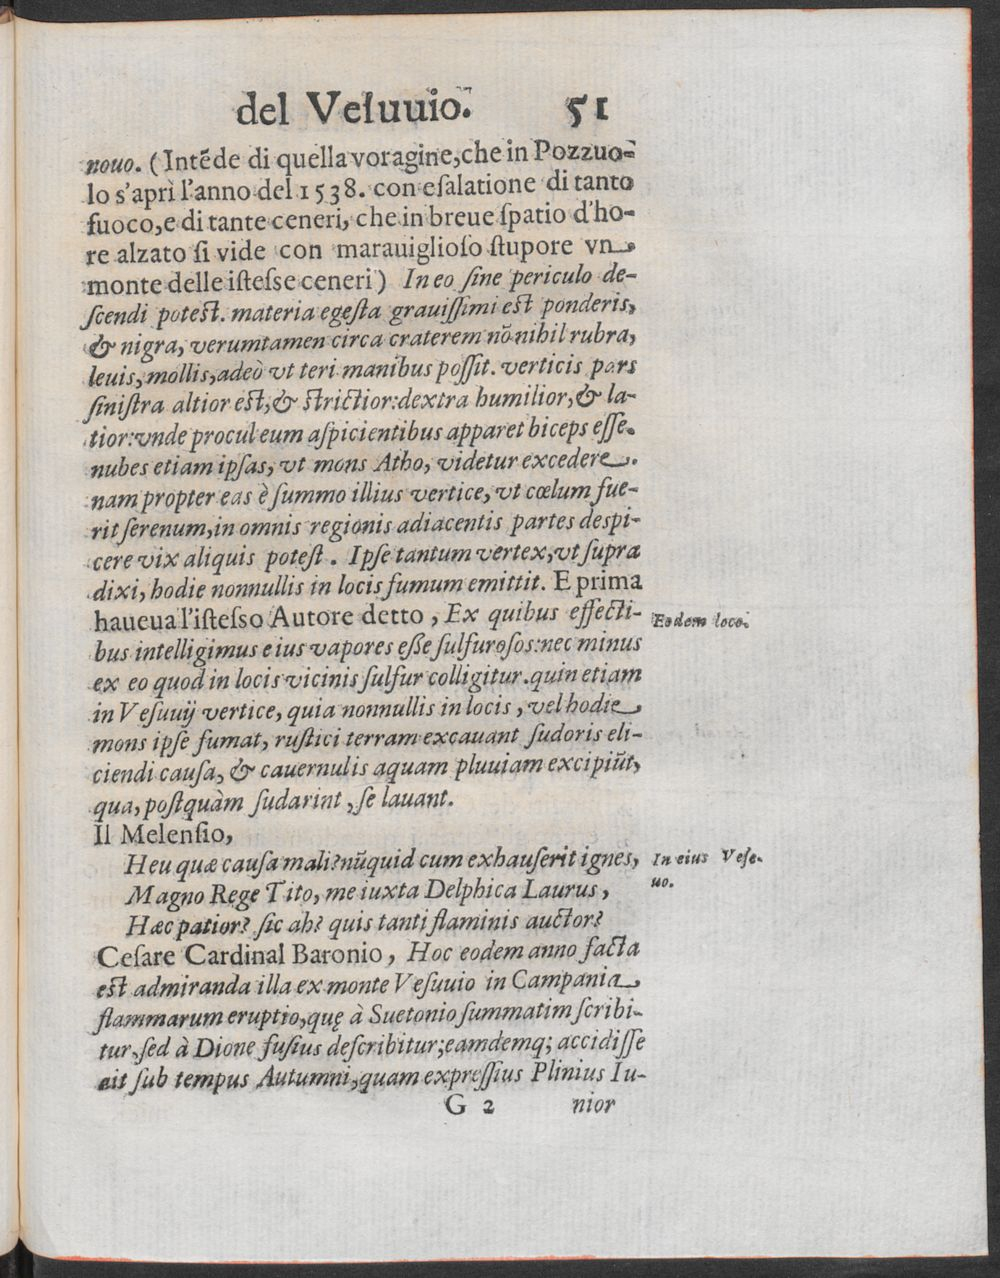 del Veſuuio. 51
nouo. (Intẽde di quella voragine, che in Pozzuo-
lo s'aprì l'anno del 1538. con eſalatione di tanto
fuoco, e di tante ceneri, che in breue ſpatio d'ho-
re alzato ſi vide con marauiglioſo ſtupore vn
monte delle iſteſse ceneri) In eo ſine periculo de-
ſcendi poteſt. materia egeſta grauiſſimi eſt ponderis,
& nigra, verumtamen circa craterem nõ nihil rubra,
leuis, mollis, adeò vt teri manibus poſſit. verticis pars
ſiniſtra altior eſt, & ſtrictior: dextra humilior, & la-
tior: vnde procul eum aſpicientibus apparet biceps eſſe.
nubes etiam ipſas, vt mons Atho, videtur excedere.
nam propter eas è ſummo illius vertice, vt cœlum fue-
rit ſerenum, in omnis regionis adiacentis partes deſpi-
cere vix aliquis poteſt. Ipſe tantum vertex, vt ſupra
dixi, hodie nonnullis in locis fumum emittit. E prima
haueua l'iſteſso Autore detto, Ex quibus effecti-
Eodem loco.
bus intelligimus eius vapores eſſe ſulfuroſos: nec minus
ex eo quod in locis vicinis ſulfur colligitur. quin etiam
in Veſuuij vertice, quia nonnullis in locis, vel hodie
mons ipſe fumat, ruſtici terram excauant ſudoris eli-
ciendi cauſa, & cauernulis aquam pluuiam excipiũt,
qua, poſtquàm ſudarint, ſe lauant.
Il Melenſio,
Heu quæ cauſa mali? nũquid cum exhauſerit ignes,
In eius Veſe-
uo.
Magno Rege Tito, me iuxta Delphica Laurus,
Hæc patior? ſic ah? quis tanti flaminis auctor?
Ceſare Cardinal Baronio, Hoc eodem anno facta
eſt admiranda illa ex monte Veſuuio in Campania
flammarum eruptio, quę à Suetonio ſummatim ſcribi-
tur, ſed à Dione fuſius deſcribitur; eamdemq; accidiſſe
ait ſub tempus Autumni, quam expreſſius Plinius Iu-
G 2 nior